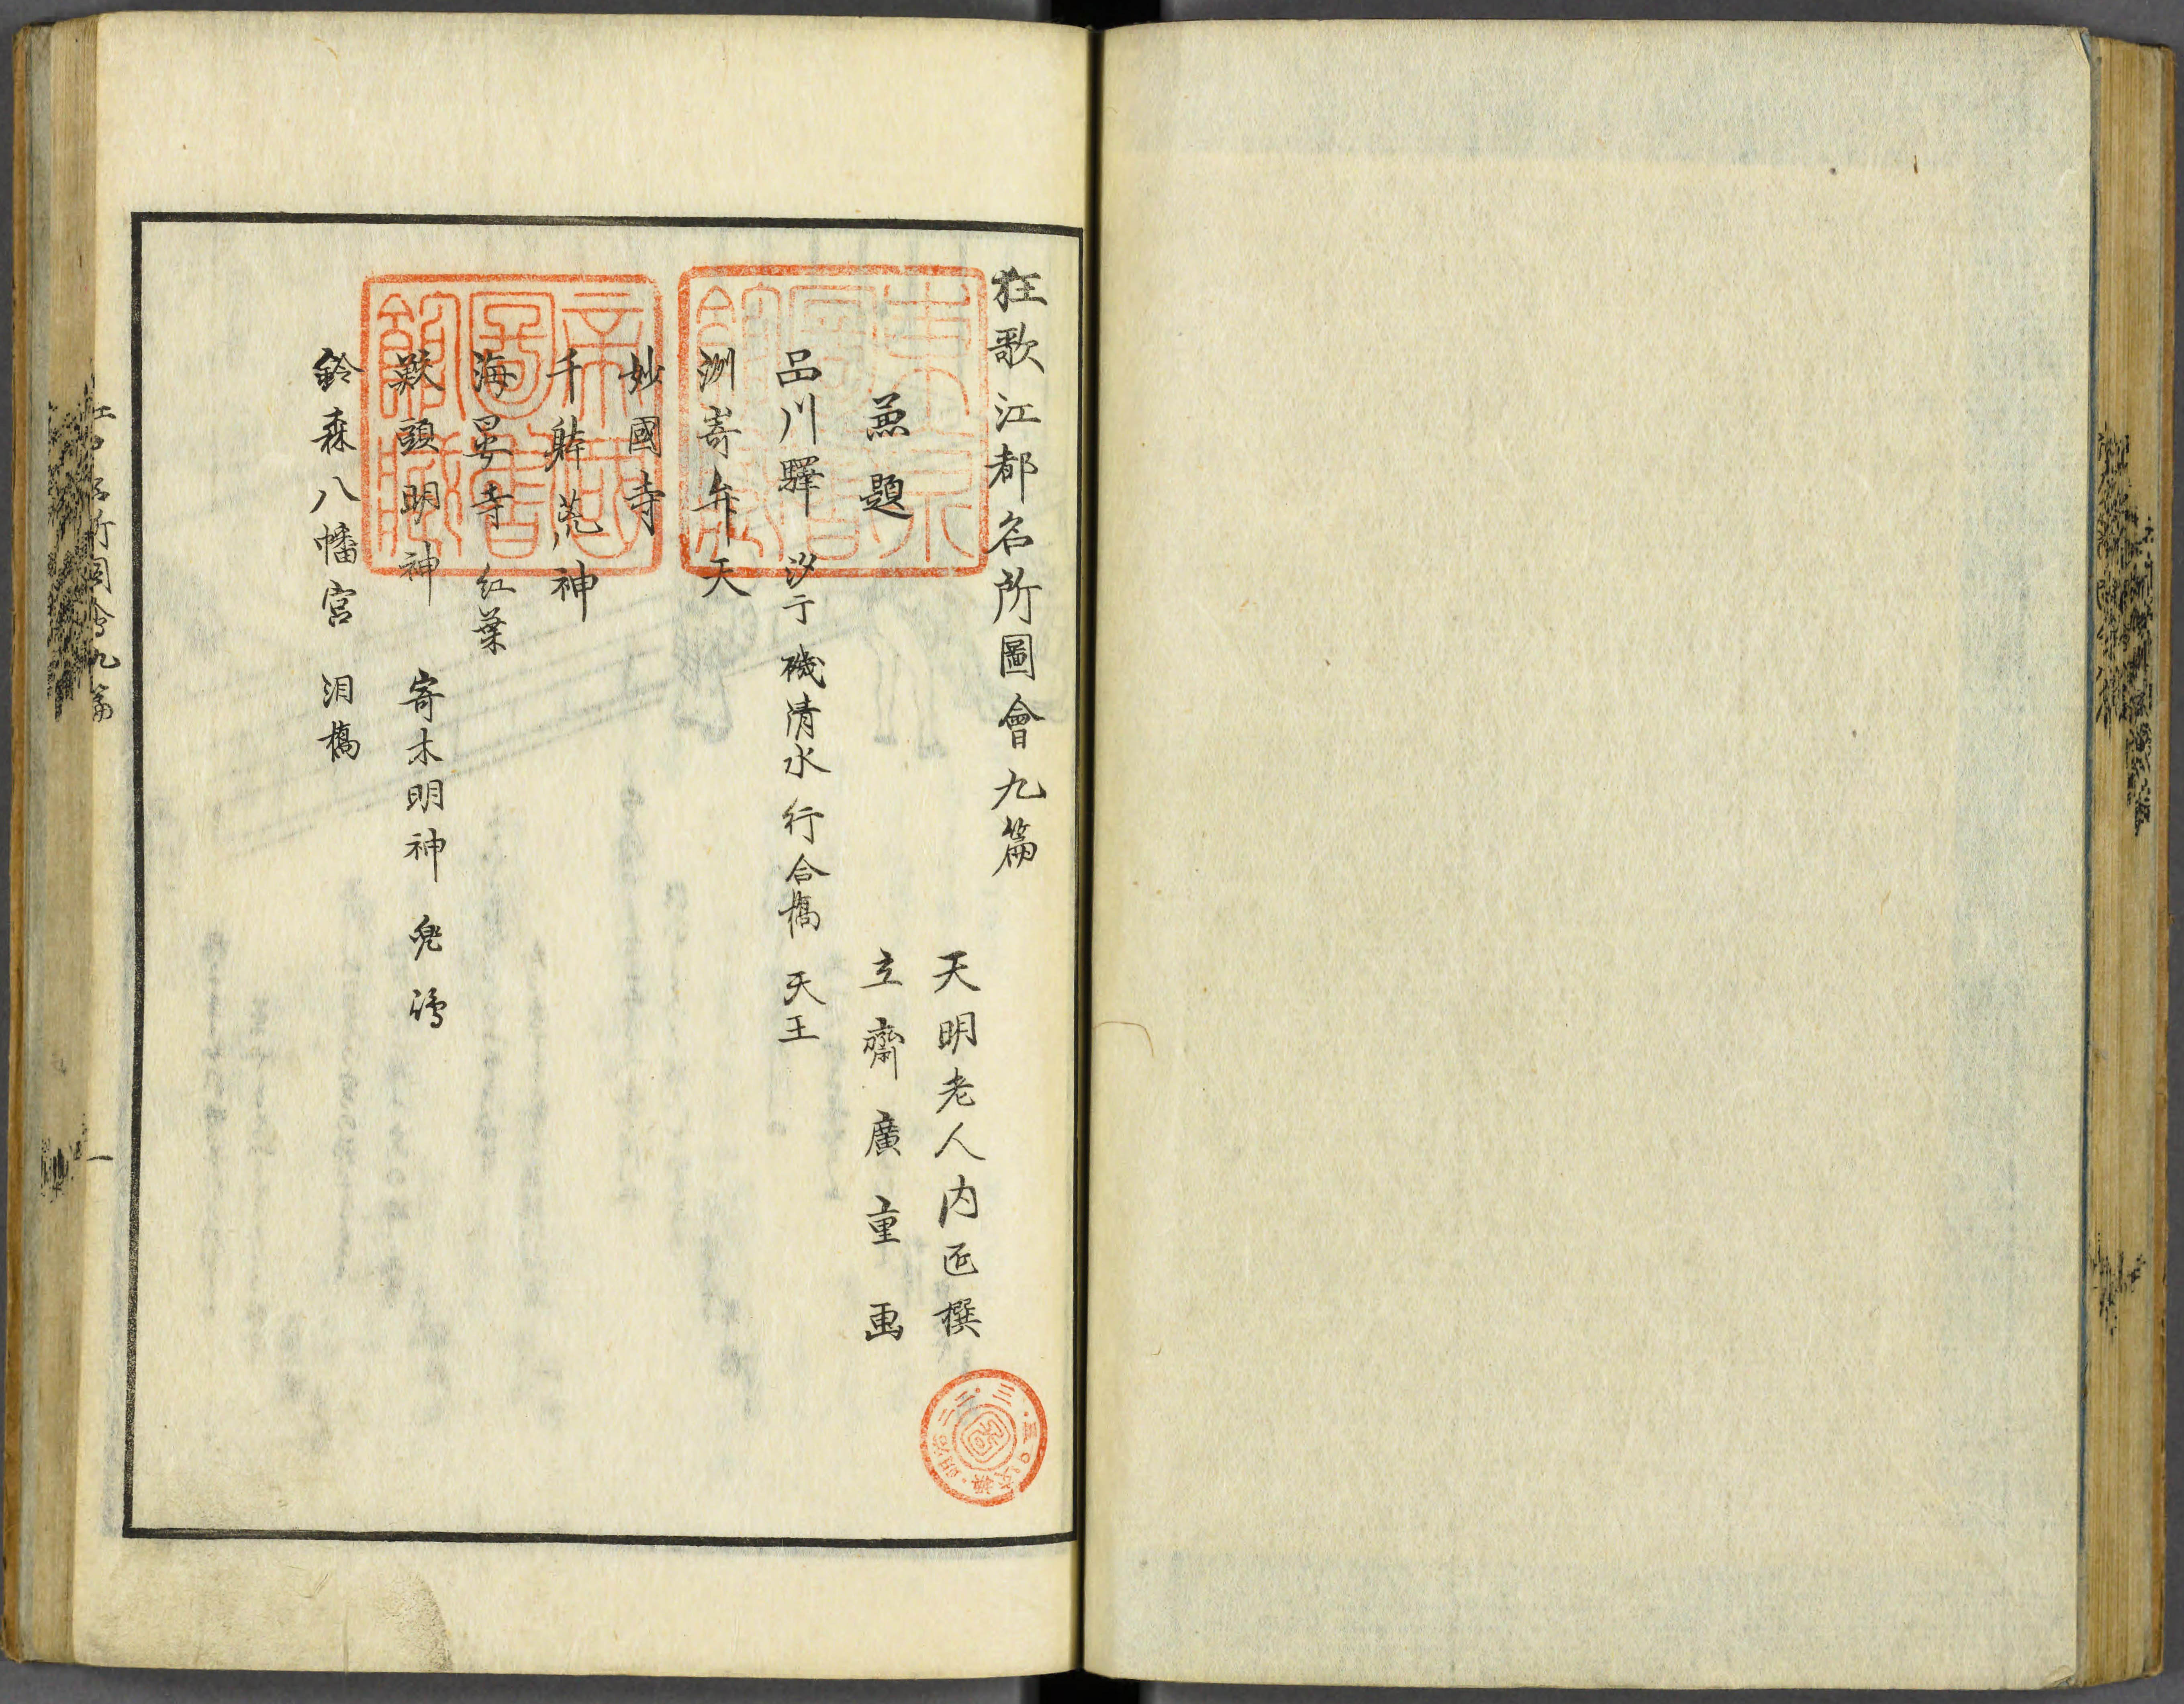 狂歌江都名所圖會九篇
天明老人内匠撰
立齋廣重画
兼題
品川驛 汐干 磯清水 行合橋 天王
洲嵜弁天
妙國寺
千躰荒神
海晏寺 紅葉
鮫頭明神 寄木明神 兜嶋
鈴森八幡宮 泪橋
東京圖書館藏
帝國圖書館藏